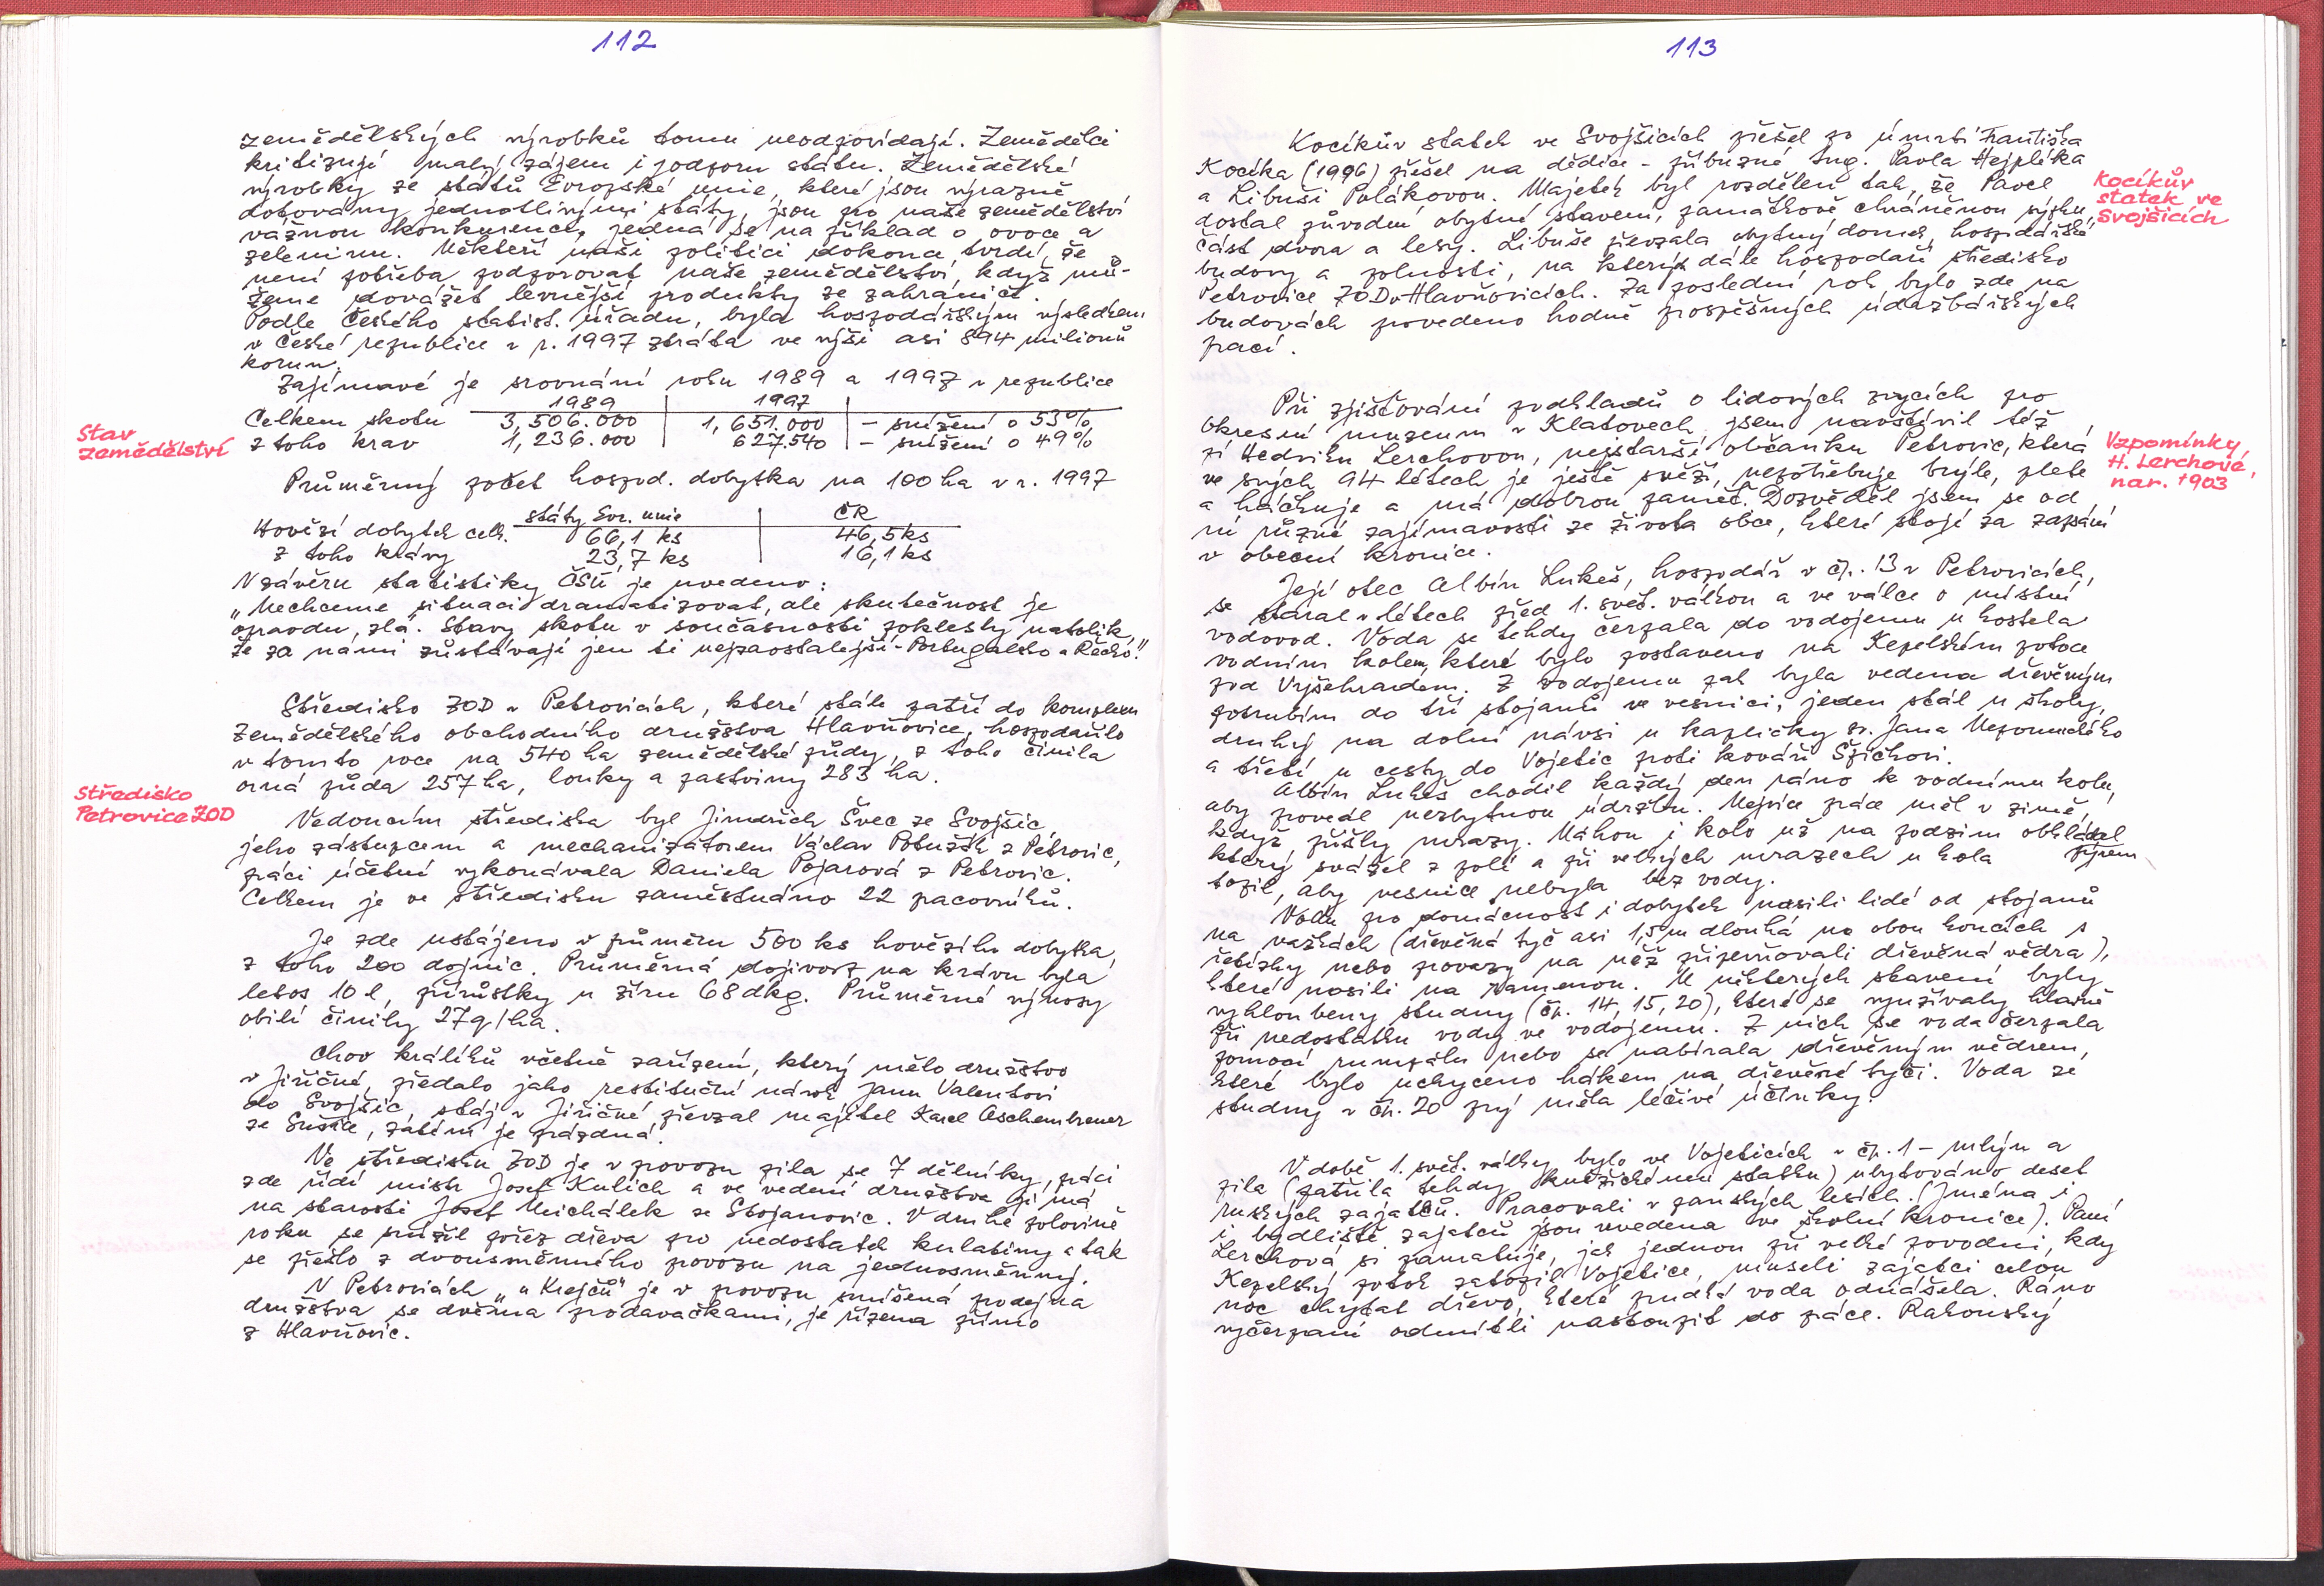 112
zemědělských výrobků tomu neodpovídají. Zemědělci
kritizují malý zájem i podporu státu. Zemědělské
výrobky ze států Evropské unie, které jsou výrazně
dotovány jednotlivými státy, jsou pro naše zemědělství
vážnou konkurencí, jedná se na příklad o ovoce a
zeleninu. Někteří naši politici dokonce tvrdí, že
není potřeba podporovat naše zemědělství, když mů-
žeme dovážet levnější produkty ze zahraničí.
Podle Českého statist. úřadu, byla hospodářským výsledkem
v České republice v r. 1997 ztráta ve výši asi 894 milionů
korun.
Zajímavé je srovnání roku 1989 a 1997 v republice
1989 1997
Celkem skotu 3,506.000 1,651.000 - snížení o 53%
Stav
zemědělství
z toho krav 1,236.000 627.540 - snížení o 49%
Průměrný počet hospod. dobytka na 100 ha v r. 1997
státy Evr. unie ČR
Hovězí dobytek celk. 66,1 ks 46,5 ks
z toho krávy 23,7 ks 16,1 ks
V závěru statistiky ČSÚ je uvedeno:
„Nechceme situaci dramatizovat, ale skutečnost je
opravdu zlá. Stavy skotu v současnosti poklesly natolik,
že za námi zůstávají jen ti nejzaostalejší - Portugalsko a Řecko."
Středisko ZOD v Petrovicích, které stále patří do komplexu
Zemědělského obchodního družstva Hlavňovice, hospodařilo
v tomto roce na 540 ha zemědělské půdy, z toho činila
orná půda 257 ha, louky a pastviny 283 ha.
Středisko
Petrovice ZOD
Vedoucím střediska byl Jindřich Švec ze Svojšic,
jeho zástupcem a mechanizátorem Václav Potužák z Petrovic,
práci účetní vykonávala Daniela Pojarová z Petrovic.
Celkem je ve středisku zaměstnáno 22 pracovníků.
Je zde ustájeno v průměru 500 ks hovězího dobytka,
z toho 200 dojnic. Průměrná dojivost na krávu byla
letos 10 l, přírůstky u žíru 68 dkg. Průměrné výnosy
obilí činily 27 q/ha.
Chov králíků včetně zařízení, který mělo družstvo
v Jiřičné, předalo jako restituční nárok Janu Valentovi
do Svojšic, stáj v Jiřičné převzal majitel Karel Aschenbrener
ze Sušice, zatím je prázdná.
Ve středisku ZOD je v provozu pila se 7 dělníky, práci
zde řídí mistr Josef Kulich a ve vedení družstva ji má
na starosti Josef Michálek ze Stojanovic. V druhé polovině
roku se snížil pořez dřeva pro nedostatek kulatiny a tak
se přešlo z dvousměnného provozu na jednosměnný.
V Petrovicích „u Krejčů" je v provozu smíšená prodejna
družstva se dvěma prodavačkami, je řízena přímo
z Hlavňovic.
113
Kocíkův statek ve Svojšicích přešel po úmrtí Františka
Kocíka (1996) přešel na dědice - příbuzné Ing. Pavla Hejplíka
a Libuši Polákovou. Majetek byl rozdělen tak, že Pavel
dostal původní obytné stavení, památkově chráněnou sýpku,
část dvora a lesy. Libuše převzala obytný domek, hospodářské
budovy a polnosti, na kterých dále hospodaří středisko
Petrovice ZOD v Hlavňovicích. Za poslední rok bylo zde na
budovách provedeno hodně prospěšných údržbářských
prací.
Kocíkův
statek ve
Svojšicích
Při zjišťování podkladů o lidových zvycích pro
okresní muzeum v Klatovech jsem navštívil též
pí Hedviku Lerchovou, nejstarší občanku Petrovic, která
ve svých 94 létech je ještě svěží, nepotřebuje brýle, plete
a háčkuje a má dobrou paměť. Dozvěděl jsem se od
ní různé zajímavosti ze života obce, které stojí za zapsání
v obecní kronice.
Vzpomínky
H. Lerchové,
nar. 1903
Její otec Albín Lukeš, hospodář v čp. 13 v Petrovicích,
se staral v létech před 1. svět. válkou a ve válce o místní
vodovod. Voda se tehdy čerpala do vodojemu u kostela
vodním kolem, které bylo postaveno na Kepelském potoce
pod Vyšehradem. Z vodojemu pak byla vedena dřevěným
potrubím do tří stojanů ve vesnici, jeden stál u školy,
druhý na dolní návsi u kapličky sv. Jana Nepomuckého
a třetí u cesty do Vojetic proti kováři Špičkovi.
Albín Lukeš chodil každý den ráno k vodnímu kolu,
aby provedl nezbytnou údržbu. Nejvíce práce měl v zimě,
když přišly mrazy. Náhon i kolo už na podzim obkládal
který svážel z polí a při velkých mrazech u kola
topil, aby vesnice nebyla bez vody.
Vodu pro domácnost i dobytek nosili lidé od stojanů
na vážkách (dřevěná tyč asi 1,5 m dlouhá na obou koncích s
řetízky nebo provazy na něž připevňovali dřevěná vědra),
které nosili na rameni. U některých stavení byly
vyhloubeny studny (čp. 14, 15, 20), které se využívaly hlavně
při nedostatku vody ve vodojemu. Z nich se voda čerpala
pomocí rumpálu nebo se nabírala dřevěným vědrem,
které bylo uchyceno hákem na dřevěné tyči. Voda ze
studny v čp. 20 prý měla léčivé účinky.
V době 1. svět. války bylo ve Vojeticích v čp. 1 - mlýn a
pila (patřila tehdy statku) ubytováno deset
ruských zajatců. Pracovali v panských lesích. (Jména i
i bydliště zajatců jsou uvedena ve školní kronice). Paní
Lerchová si pamatuje, jak jednou při velké povodni, kdy
Kepelský potok zatopil Vojetice, museli zajatci celou
noc chytat dřevo, které prudká voda odnášela. Ráno
vyčerpaní odmítli nastoupit do práce. Rakouský